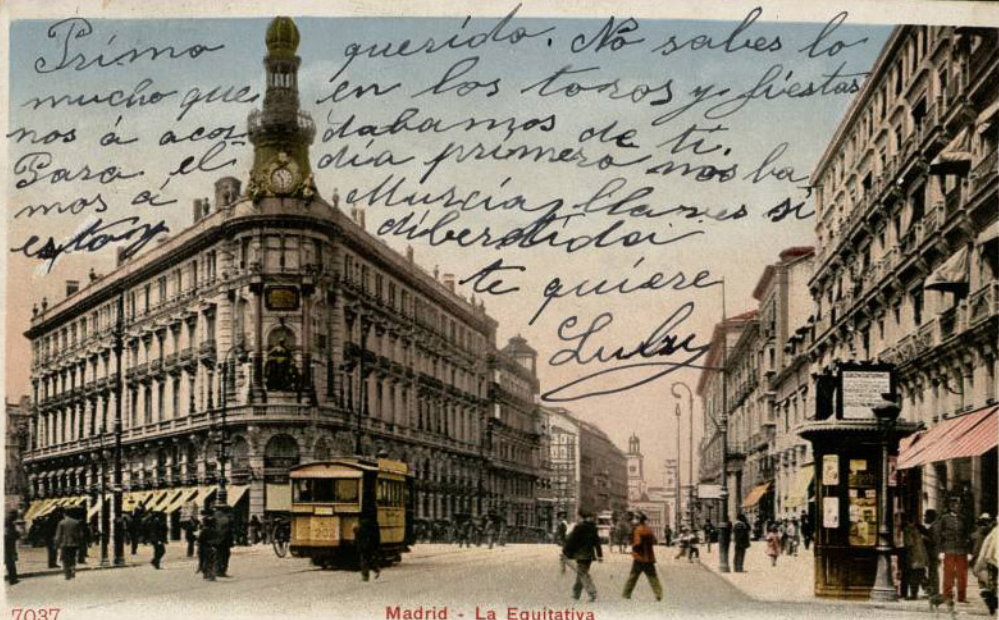 Primo querido. No sabes lo
mucho que en los toros y fiestas
nos á acor dabamos de ti.
Para el día primero nos ba
mos á Murcia, si
estoy diberdida
te quiere
Luly
202
7037
Madrid - La Equitativa